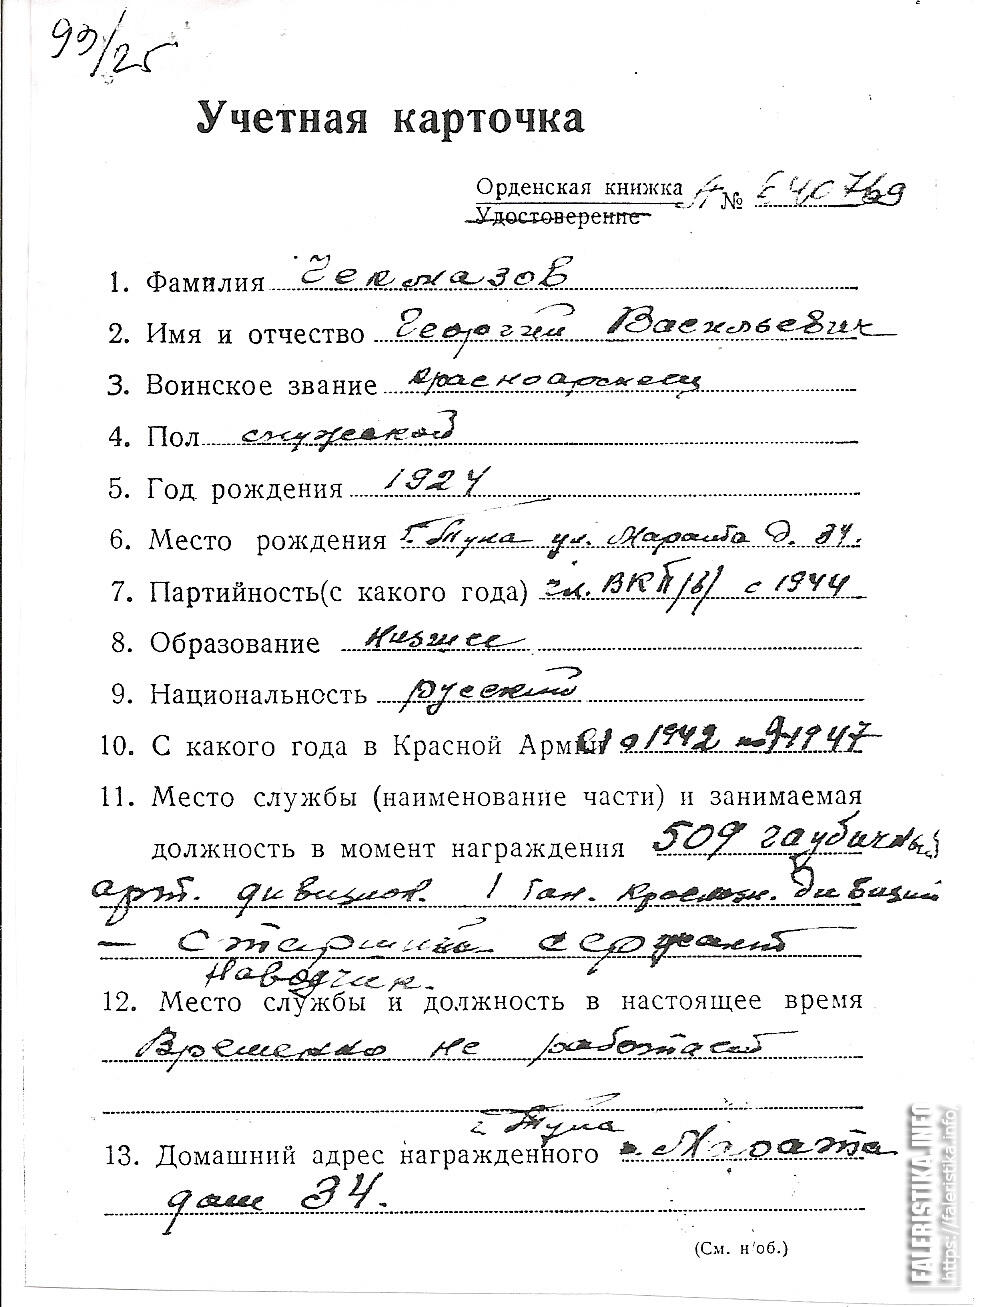 93/25
Учетная карточка
Орденская книжка А № 640769
Удостоверение
1. Фамилия Чекмазов
2. Имя и отчество Георгий Васильевич
3. Воинское звание красноармеец
4. Пол мужской
5. Год рождения 1924
6. Место рождения г. Тула ул. Марата д. 34.
7. Партийность(с какого года) чл. ВКП/б/ с 1944
8. Образование низшее
9. Национальность русский
10. С какого года в Красной Армии с 1942 по 1947
11. Место службы (наименование части) и занимаемая
должность в момент награждения 509 гаубичный
арт. дивизион. 1 Тан. Краснозн. дивизий
— Старший сержант
наводчик.
12. Место службы и должность в настоящее время
Временно не работает
г. Тула
13. Домашний адрес награжденного Марата
дом 34.
(См. н/об.)
FALERISTIKA.INFO
https://faleristika.info